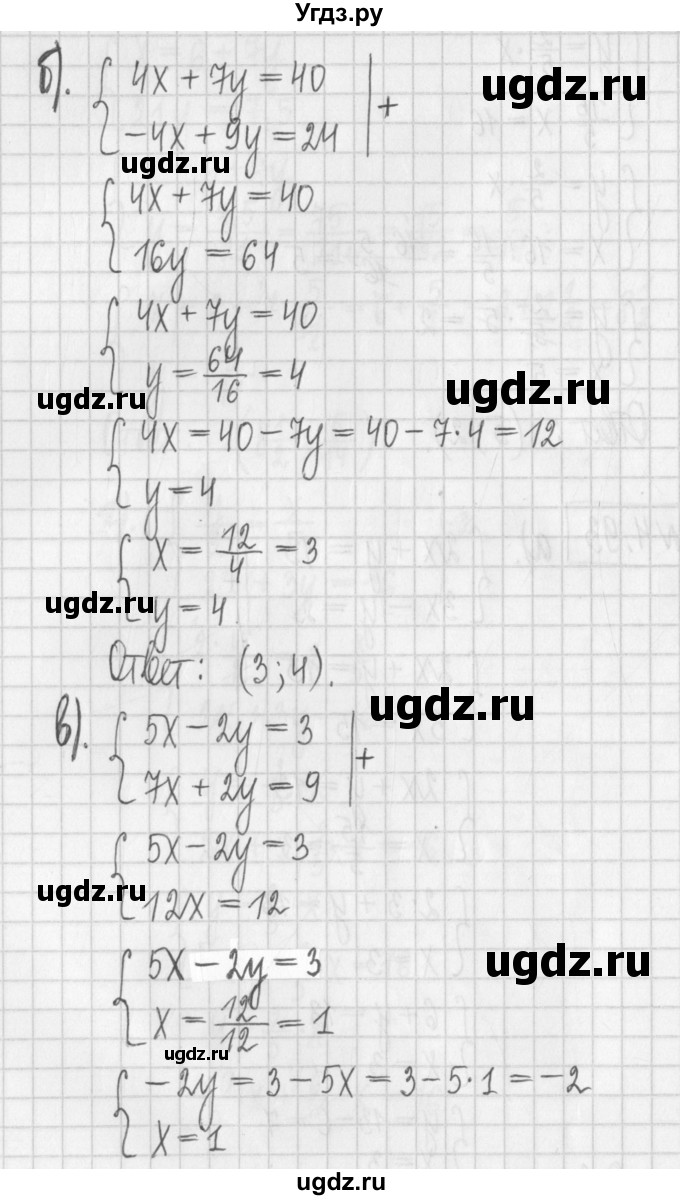 Угдз.ру
б). { 4x + 7y = 40 | +
{ -4x + 9y = 24
ugdz.ru
ugdz.ru
{ 4x + 7y = 40
{ 16y = 64
{ 4x + 7y = 40
{ y = 64/16 = 4
ugdz.ru
ugdz.ru
{ 4x = 40 - 7y = 40 - 7·4 = 12
{ y = 4
{ x = 12/4 = 3
{ y = 4
ugdz.ru
Ответ: (3;4).
ugdz.ru
в). { 5x - 2y = 3 | +
{ 7x + 2y = 9
{ 5x - 2y = 3
{ 12x = 12
ugdz.ru
{ 5x - 2y = 3
{ x = 12/12 = 1
ugdz.ru
ugdz.ru
{ -2y = 3 - 5x = 3 - 5·1 = -2
{ x = 1
ugdz.ru